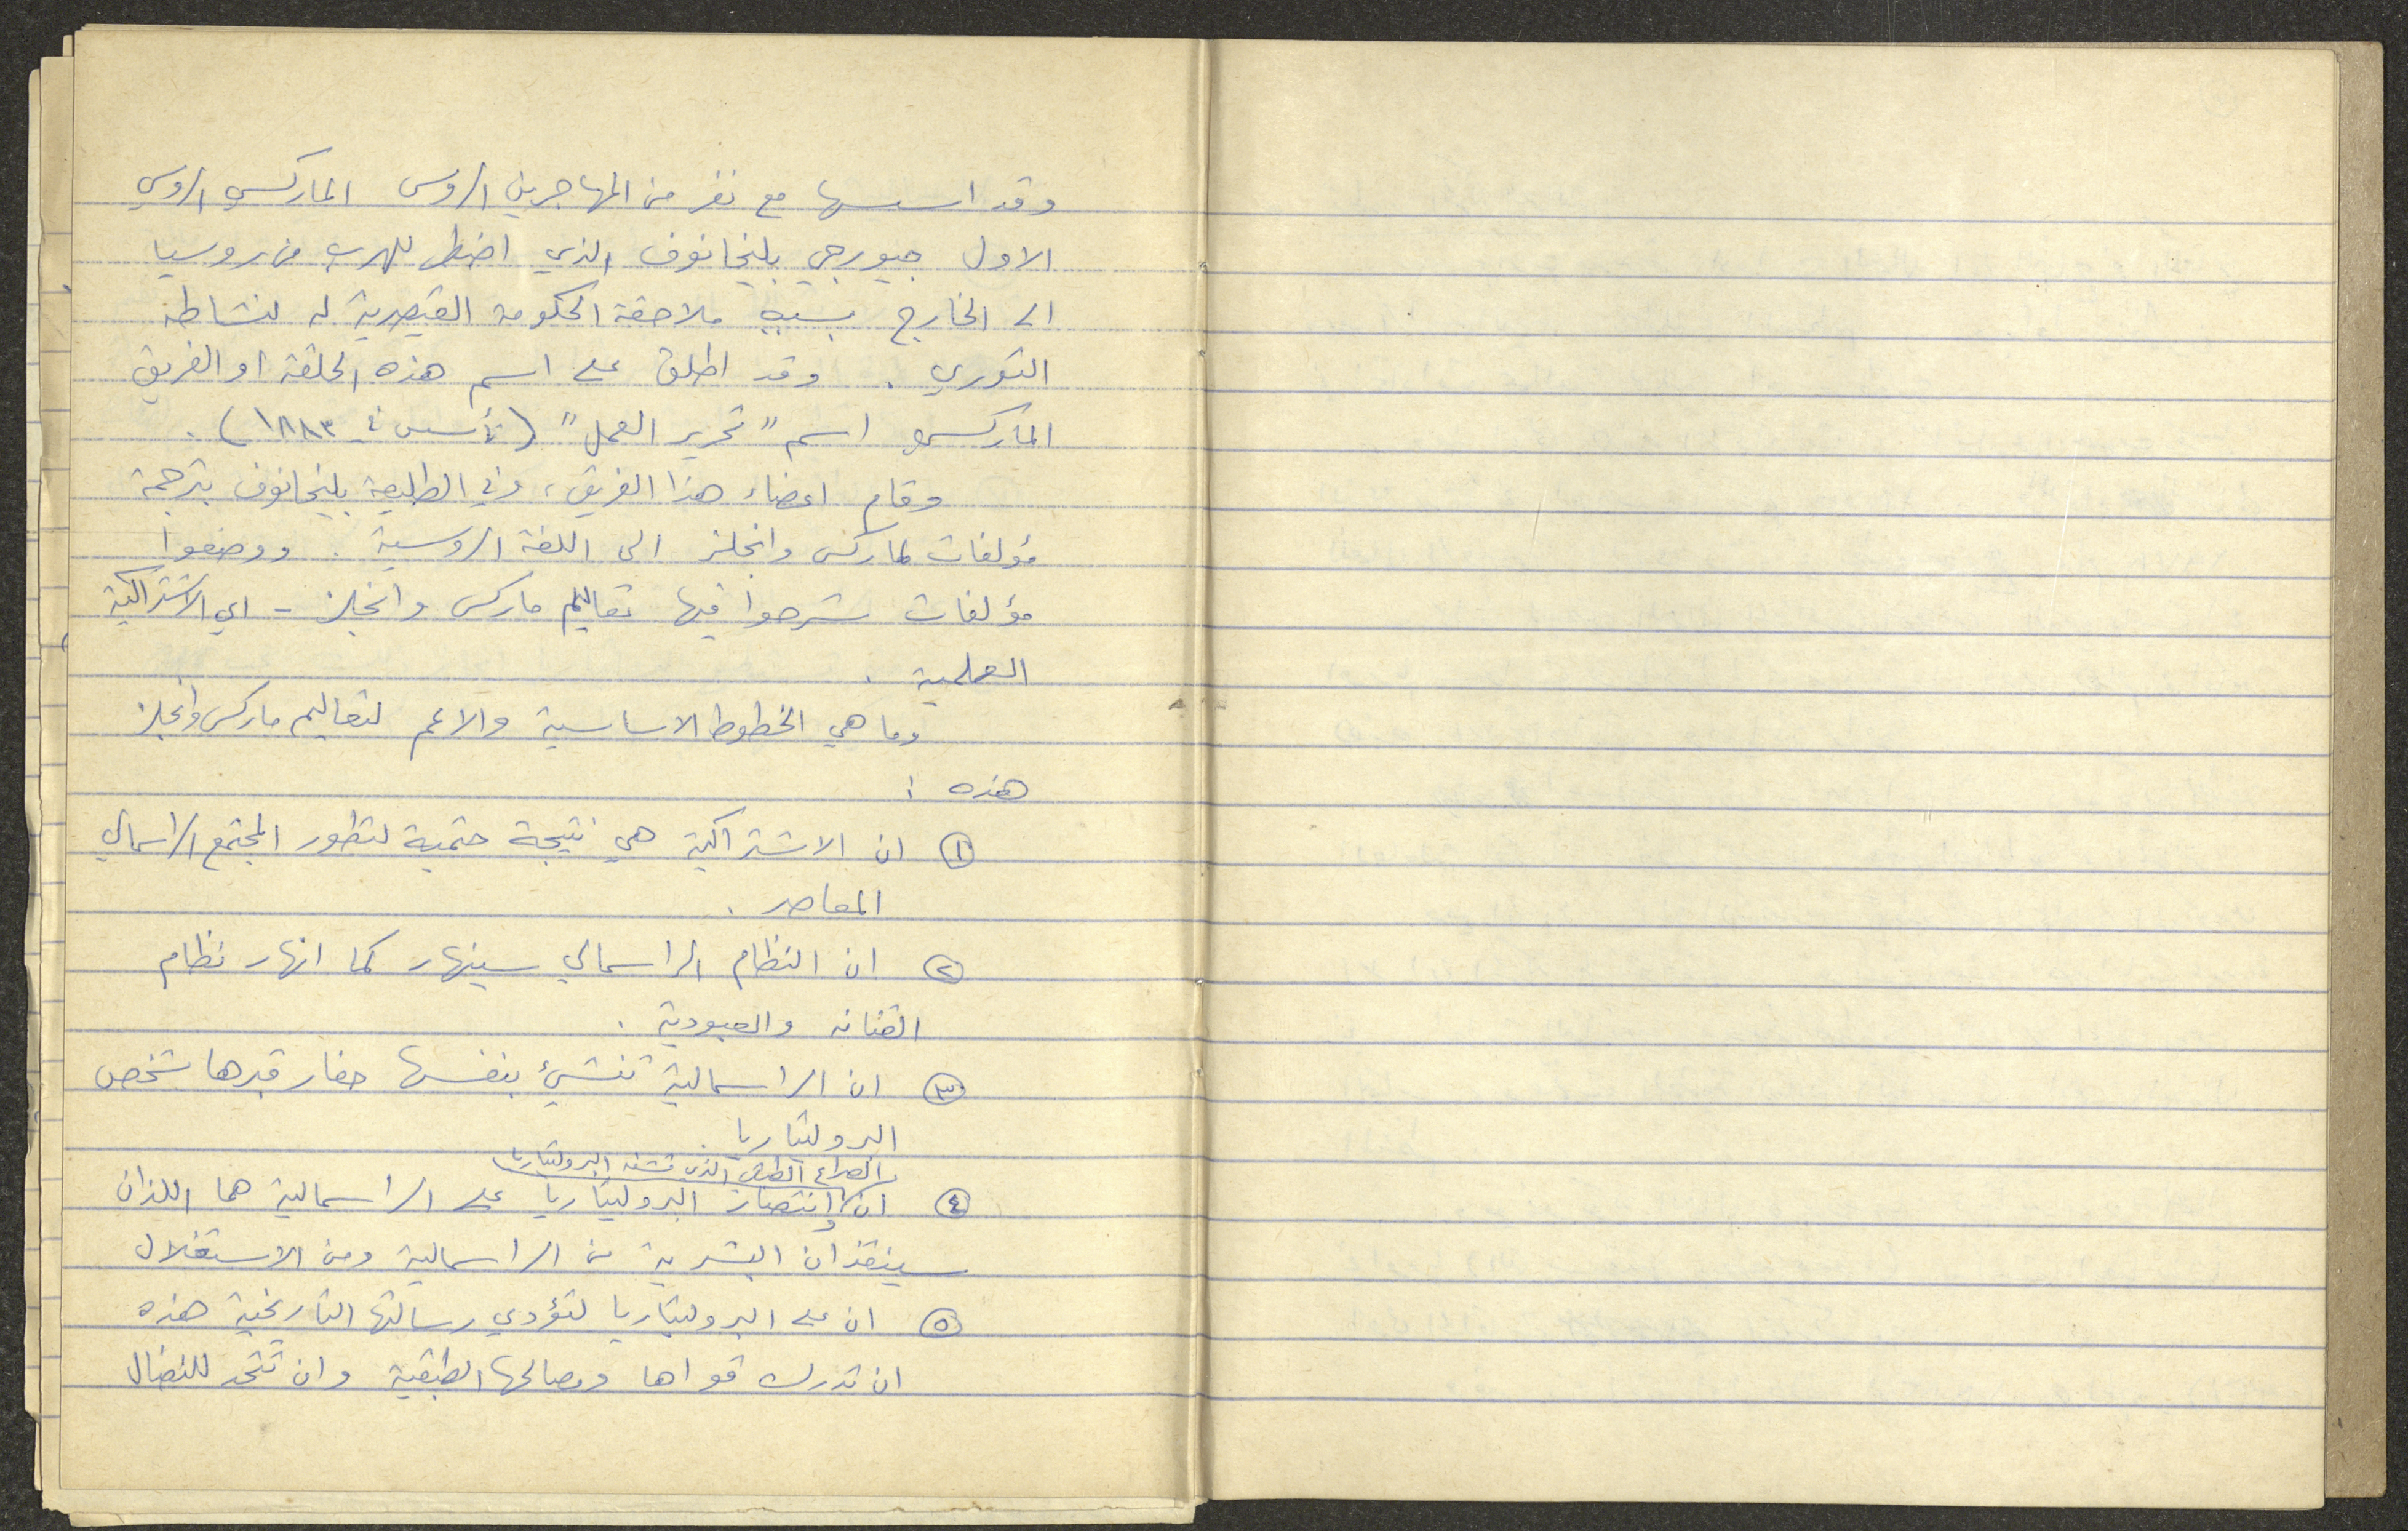 وقد اسسها مع نفر من المهاجرين الروس الماركسي الروسي
الاول جيورجي بليخانوف الذي اضطر للهرب من روسيا
الى الخارج بسبب ملاحقة الحكومة القيصرية له لنشاطه
الثوري . وقد اطلق على اسم هذه الحلقة او الفريق
الماركسي اسم "تحرير العمل" (تأسس في ١٨٨٣) .
وقام اعضاء هذا الفريق، وفي الطليعة بليخانوف بترجمة
مؤلفات لماركس وانجلز الى اللغة الروسية . ووضعوا
مؤلفات شرحوا فيها تعاليم ماركس وانجلز - اي الاشتراكية
العلمية .
وما هي الخطوط الاساسية والاعم لتعاليم ماركس وانجلز
هذه :
① ان الاشتراكية هي نتيجة حتمية لتطور المجتمع الراسمالي
المعاصر .
② ان النظام الراسمالي سينهار كما انهار نظام
القنانه والعبودية .
③ ان الراسمالية تنشئ بنفسها حفار قبرها شخص
البروليتاريا
الصراع الطبقي الذي تشنه البروليتاريا
④ ان وانتصار البروليتاريا على الراسمالية هما اللذان
سينقذان البشرية من الراسمالية ومن الاستغلال
⑤ ان على البروليتاريا لتؤدي رسالتها التاريخية هذه
ان تدرك قواها ومصالحها الطبقية وان تتحد للنضال